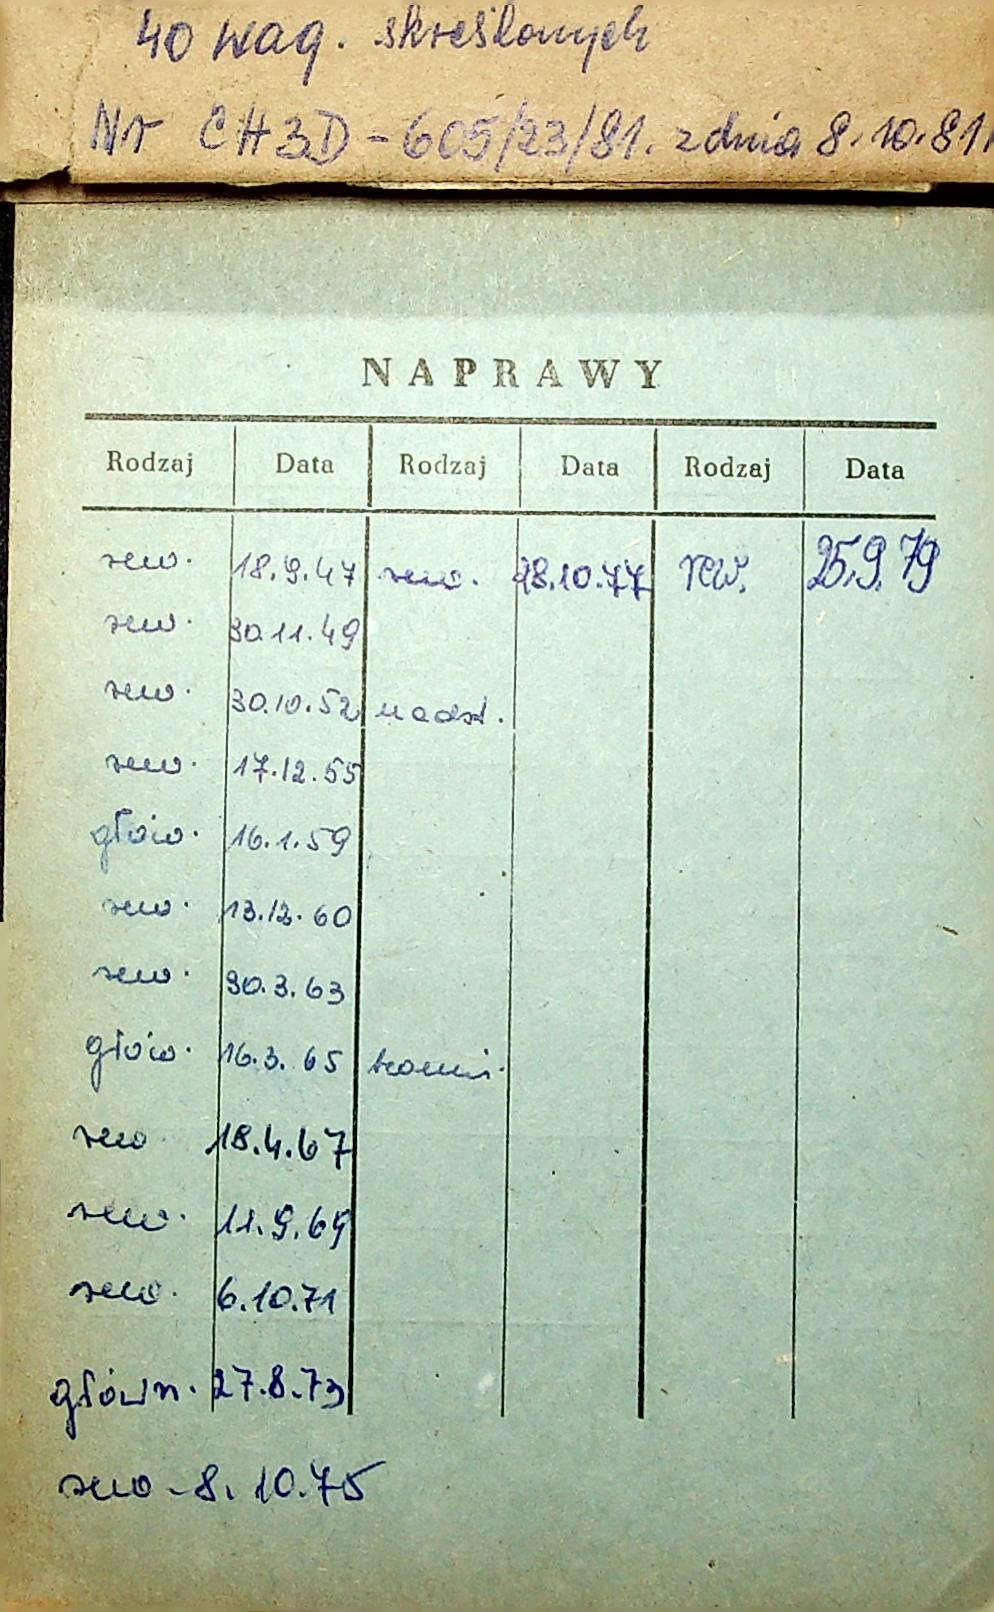 40 wag. skreślonych
Nr CH3D-605/23/81. z dnia 8.10.81
NAPRAWY
Rodzaj Data Rodzaj Data Rodzaj Data
rew. 18.9.47 rew. 28.10.77 rew. 25.9.79
rew. 30.11.49
rew. 30.10.52 nadzł.
rew. 17.12.55
głów. 16.1.59
rew. 13.12.60
rew. 30.3.63
głów. 16.3.65
rew 18.4.67
rew. 11.9.69
rew. 6.10.71
główn. 27.8.73
rew - 8.10.75